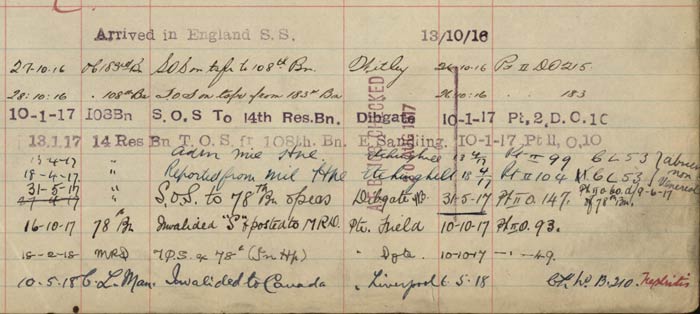 Arrived in England S.S. 13/10/16
27-10-16 O/C 183rd Bn S.O.S on tsfr to 108th Bn. Whitley 26-10-16 Pt II DO 215.
28:10:16 . 108th Bn T.O.S on tsfr from 183rd Bn 26-10-16 . 183
10-1-17 108Bn S.O.S To 14th Res.Bn. Dibgate 10-1-17 Pt,2,D.O.10
13.1.17 14 Res Bn T.O.S. ft 108th. Bn. E Sandling. 10-1-17 Pt 11, O,10
13-4-17 " Adm Mil Hpe Etchinghill Pt II 99 CL53
18-4-17 " Reported from Mil Hpe Etchinghill Pt II 104 CL53
31-5-17 27-4-17 " S.O.S. to 78th Bn o/seas Dibgate 31-5-17 Pt II O.147. 9-6-17 of 78th Bn.
16-10-17 78th Bn Invalided "S" & posted to M.R.D. Pte. Field 10-10-17 Pt II O. 93.
18-2-18 MRD T.O.S. ex 78th " 10-10-17 -"- 49.
10.5.18 C. L. Man. Invalided to Canada " Liverpool 6.5.18 B.210. Nephritis